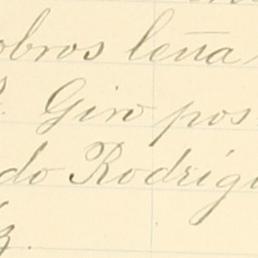 obros leña
Giro pos
do Rodrígu
z.